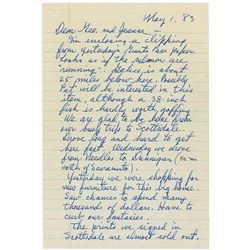 May 1, '83
Dear Geo. and Jeanne –
I'm enclosing a clipping
from yesterday's Grants Pass paper
looks as if the salmon are
"running". Galice is about
25 miles below here. Possibly
Pat will be interested in this
item, although a 38-inch
fish is hardly worth gaffing
We are glad to be home from
our busy trip to Scottsdale.
Drove long and hard to get
here fast. Wednesday we drove
from Needles to Dunnigan (30 mi
north of Sacramento).
Yesterday we were shopping for
new furniture for this big house.
Saw chances to spend many
thousands of dollars. Have to
curb our fantasies.
The prints we signed in
Scottsdale are almost sold out.